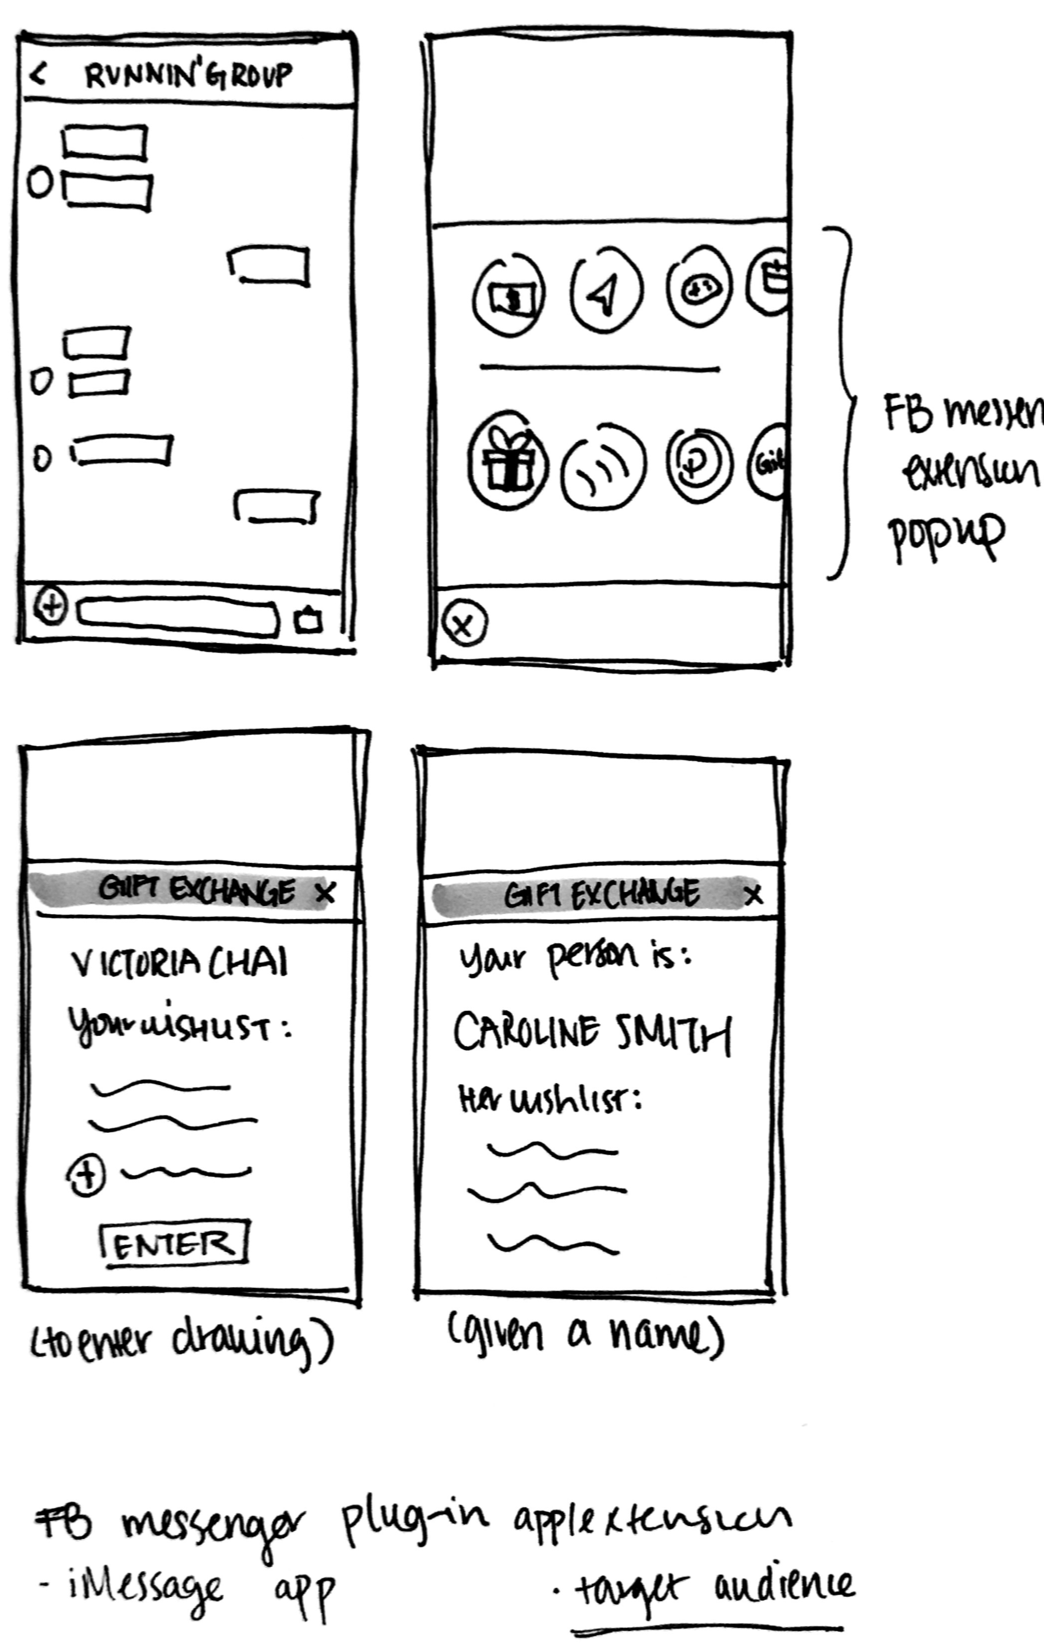 < RUNNIN' GROUP
$
P
Gif
FB messen
extension
popup
x
GIIFT EXCHANGE X
VICTORIA CHAI
Your WISHLIST:
+
ENTER
(to enter drawing)
GIFT EXCHANGE X
Your person is:
CAROLINE SMITH
Her wishlist:
(given a name)
FB messenger plug-in app/extension
- iMessage app
· target audience